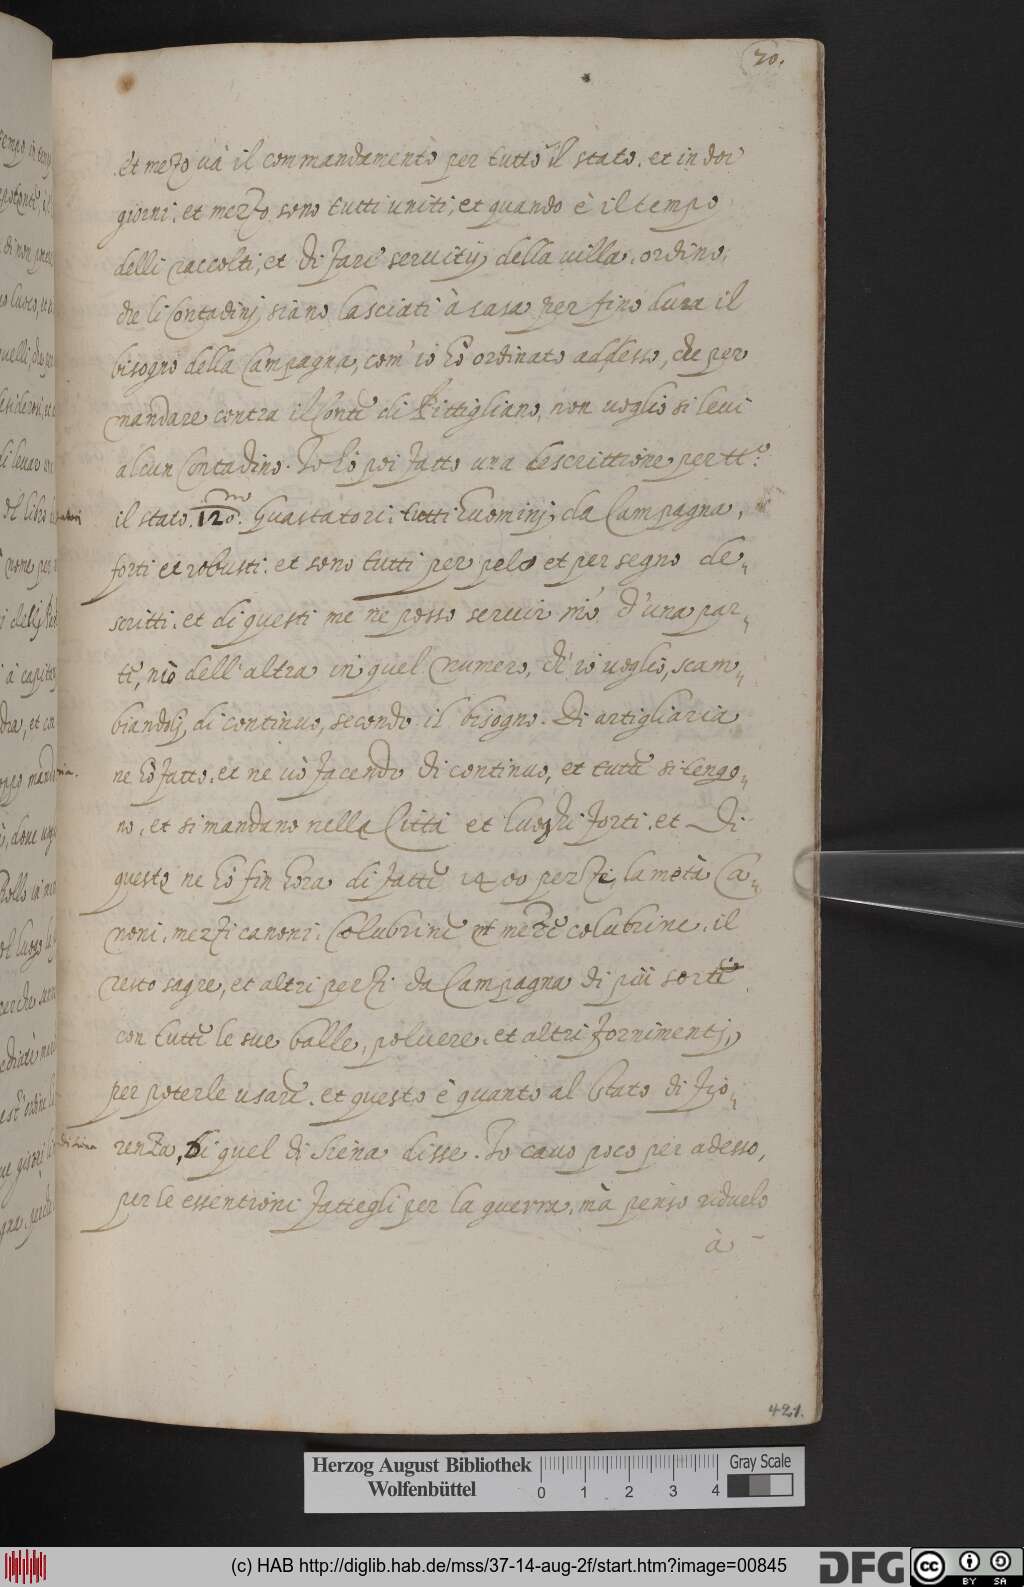 70.
et mezo uà il commandamento per tutto il stato. et in doi
giorni. et mezzo sono tutti uniti, et quando è il tempo
delli raccolti, et di fare servitij della villa. ordino,
che li Contadinj siano lasciati à casa per fino dura il
bisogno della Campagna, com' io hò ordinato addesso, che per
mandare contra il Conte di Pittigliano, non voglio si levi
alcun Contadino. Io hò poi fatto una descrittione per tt.º
il stato. 12º. Guastatori. tutti huominj da Campagna,
forti et robusti. et sono tutti per pelo et per segno de„
scritti. et di questi me ne posso servir mò d'una par„
te, mò dell'altra in quel numero, ch' io voglio, scam„
biandoli di continuo, secondo il bisogno. Di artigliaria
ne hò fatto. et ne uò facendo di continuo, et tutte si tengo„
no. et si mandano nella Città et luoghi forti. et Di
questo ne hò fin hora di fatte 1400 pezze, la metà Ca„
noni. mezzi canoni. Colubrine et meze colubrine. il
resto sagre, et altri pezzi da Campagna di più sorte
con tutte le sue balle, poluere. et altri fornimentj,
per poterle usare. et questo è quanto al Stato di Fio„
renza, Di quel di Siena disse. Io cavo poco per adesso,
per le essentioni fattegli per la guerra. mà penso ridurlo
à
421.
Herzog August Bibliothek
Wolfenbüttel
0 1 2 3 4
Gray Scale
(c) HAB http://diglib.hab.de/mss/37-14-aug-2f/start.htm?image=00845
DFG
cc BY SA